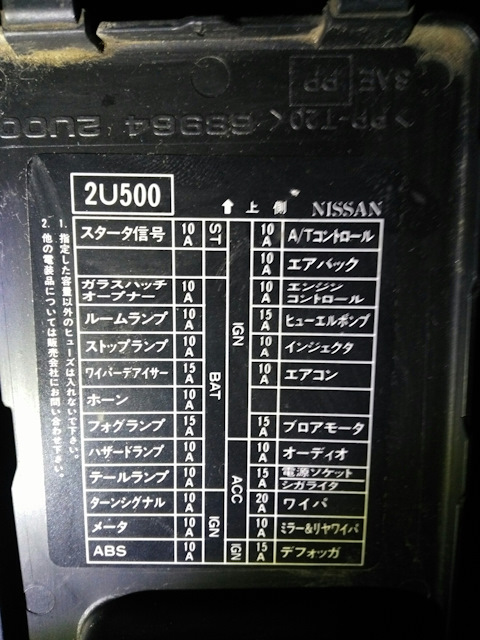 3AE PP
>PP-T20< 68964 2U00
2U500
↑ 上 側 NISSAN
スタータ信号 10A ST 10A A/Tコントロール
10A エアバック
ガラスハッチ
オープナー 10A 10A エンジン
コントロール
ルームランプ 10A IGN 15A ヒューエルポンプ
ストップランプ 10A 10A インジェクタ
ワイパーデアイサー 15A BAT 10A エアコン
ホーン 10A
フォグランプ 15A 15A ブロアモータ
ハザードランプ 10A 10A オーディオ
テールランプ 10A ACC 15A 電源ソケット
シガライタ
ターンシグナル 10A 20A ワイパ
メータ 10A IGN 10A ミラー&リヤワイパ
ABS 10A IGN 15A デフォッガ
1. 指定した容量以外のヒューズは入れないで下さい。
2. 他の電装品については販売会社にお問い合わせ下さい。